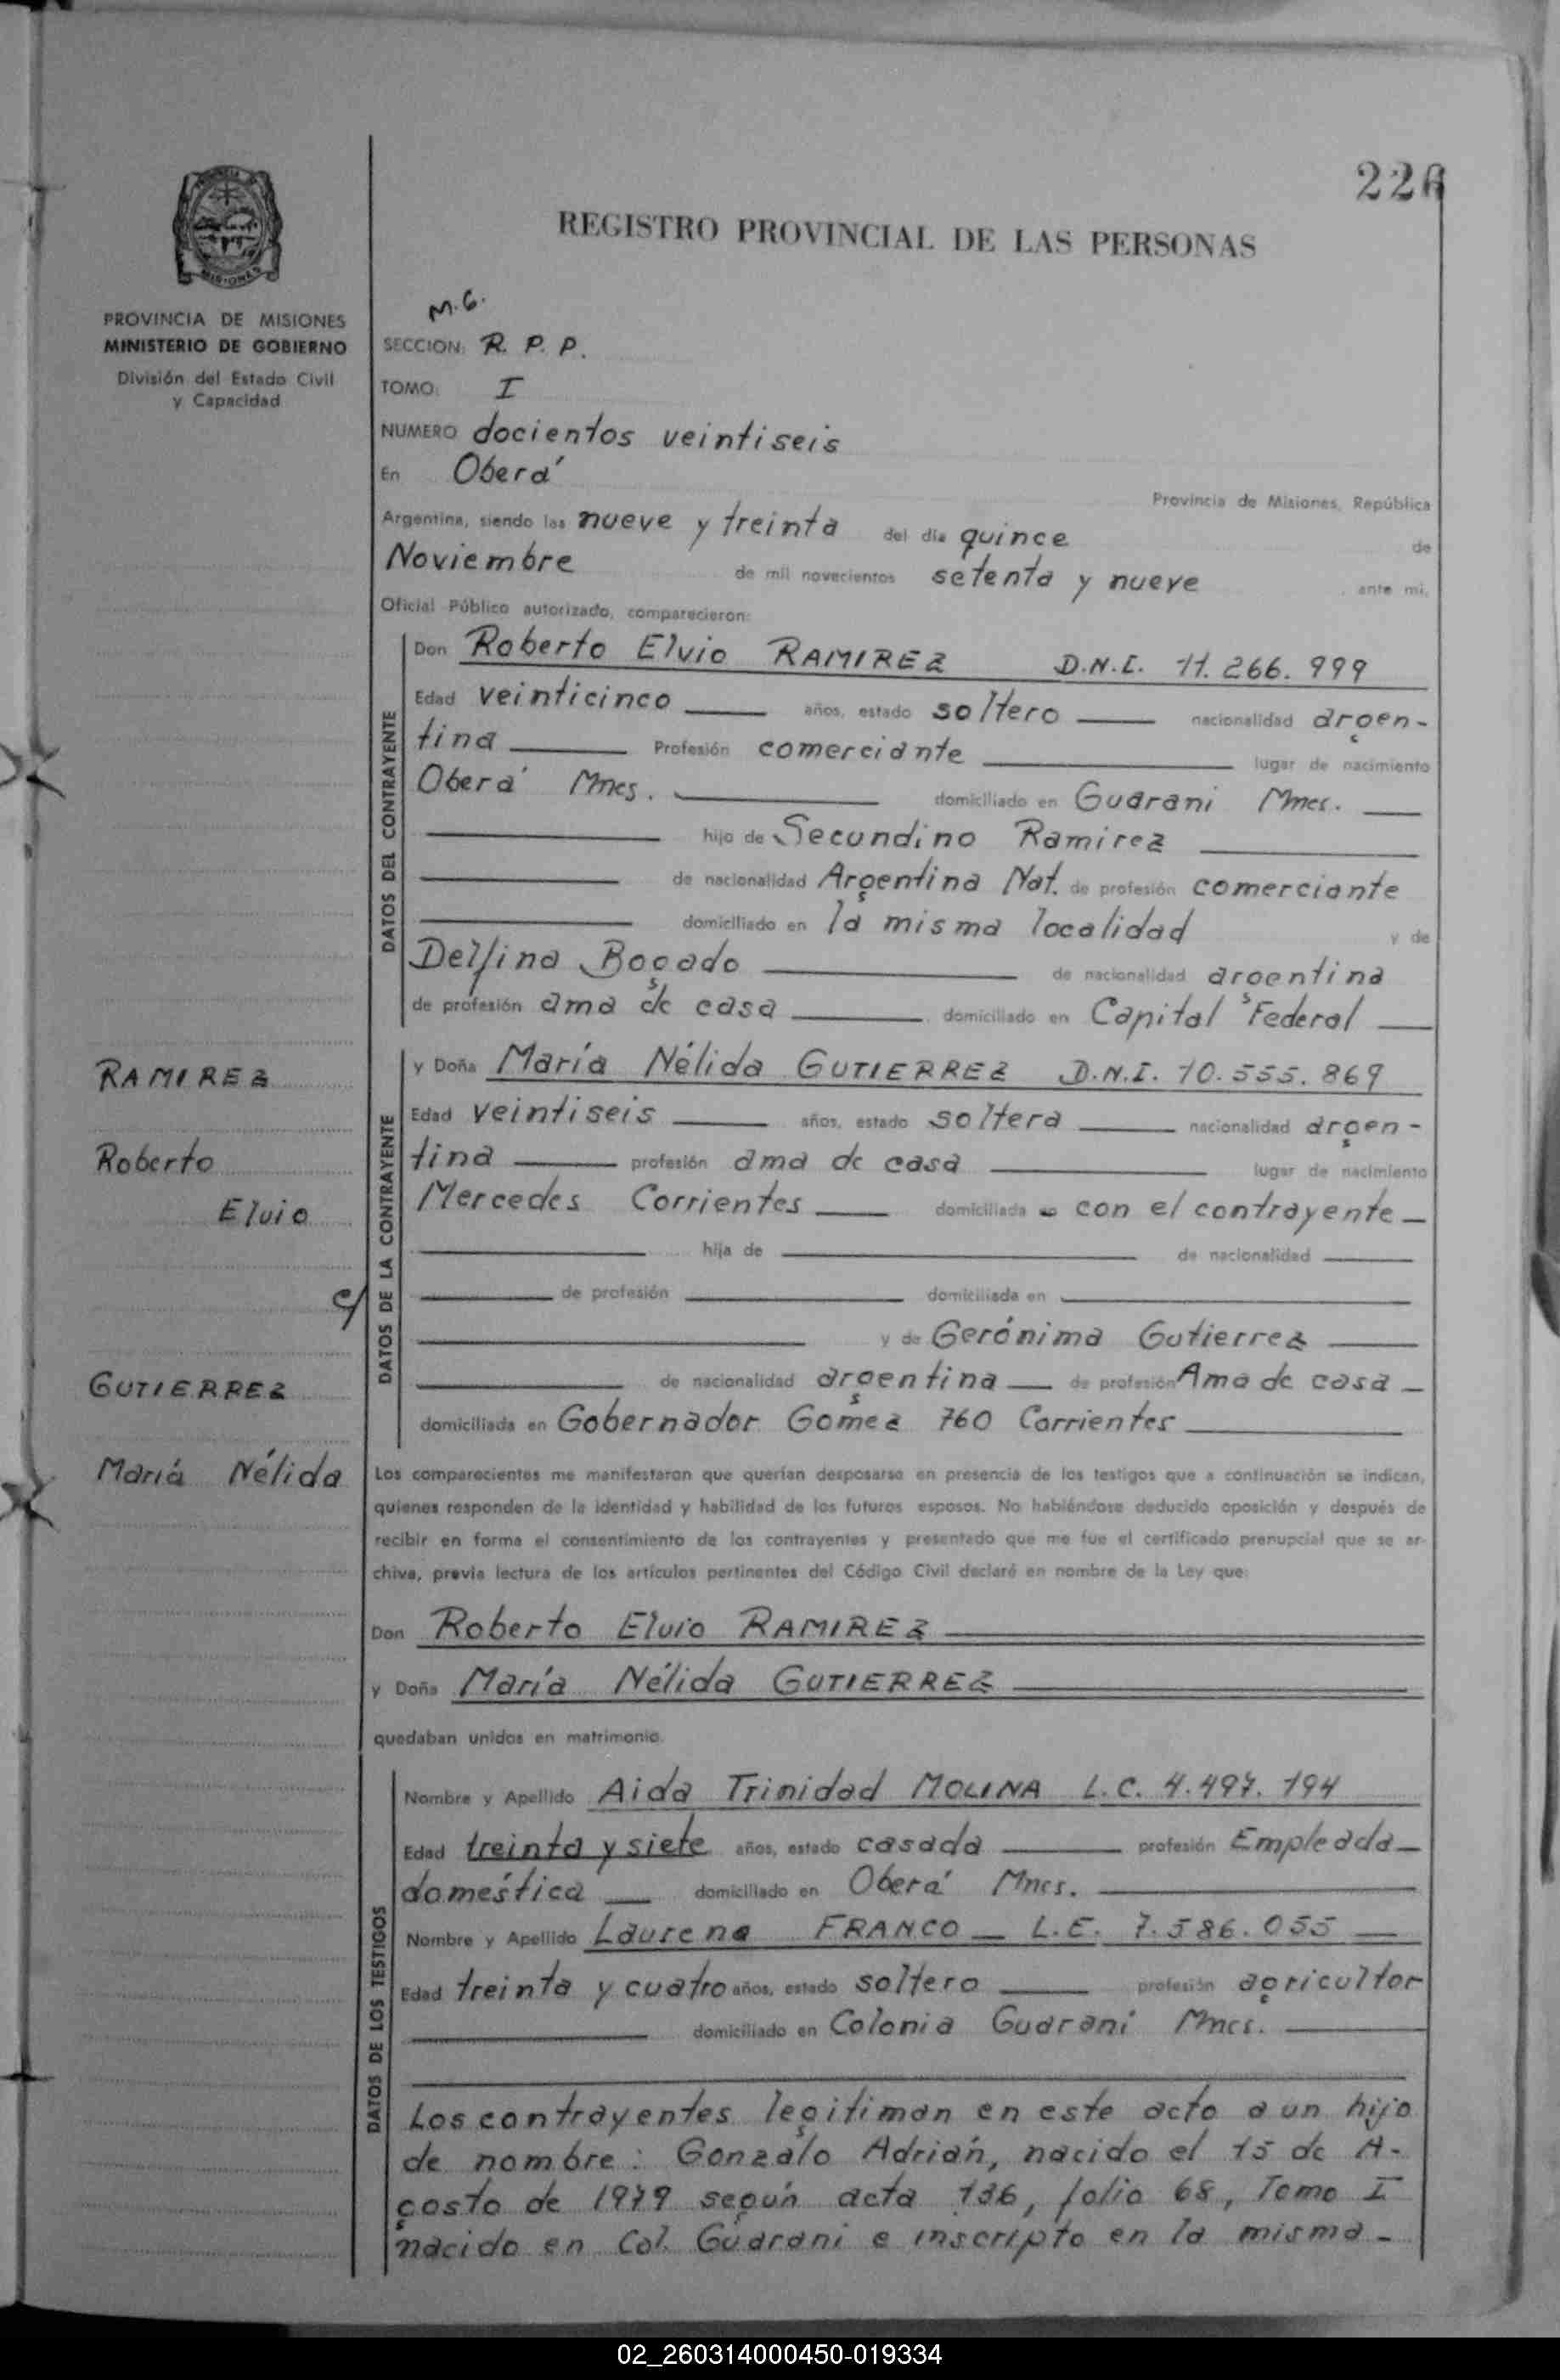 226
REGISTRO PROVINCIAL DE LAS PERSONAS
MISIONES
PROVINCIA DE MISIONES
MINISTERIO DE GOBIERNO
División del Estado Civil
y Capacidad
M.G.
SECCION: R. P. P.
TOMO: I
NUMERO docientos veintiseis
En Oberá
Provincia de Misiones, República
Argentina, siendo las nueve y treinta del día quince de
Noviembre de mil novecientos setenta y nueve ante mi,
Oficial Público autorizado, comparecieron:
DATOS DEL CONTRAYENTE
Don Roberto Elvio RAMIREZ D.N.I. 11.266.999
Edad veinticinco años, estado soltero nacionalidad argen-
tina Profesión comerciante lugar de nacimiento
Oberá Mnes. domiciliado en Guarani Mnes.
hijo de Secundino Ramirez
de nacionalidad Argentina Nat. de profesión comerciante
domiciliado en la misma localidad y de
Delfina Bogado de nacionalidad argentina
de profesión ama de casa domiciliado en Capital Federal
DATOS DE LA CONTRAYENTE
y Doña María Nélida GUTIERREZ D.N.I. 10.555.869
Edad veintiseis años, estado soltera nacionalidad argen-
tina profesión ama de casa lugar de nacimiento
Mercedes Corrientes domiciliada con el contrayente
hija de de nacionalidad
de profesión domiciliada en
y de Gerónima Gutierrez
de nacionalidad argentina de profesión Ama de casa
domiciliada en Gobernador Gomez 760 Corrientes
RAMIREZ
Roberto
Elvio
c/
GUTIERREZ
María Nélida
Los comparecientes me manifestaron que querían desposarse en presencia de los testigos que a continuación se indican,
quienes responden de la identidad y habilidad de los futuros esposos. No habiéndose deducido oposición y después de
recibir en forma el consentimiento de los contrayentes y presentado que me fue el certificado prenupcial que se ar-
chiva, previa lectura de los artículos pertinentes del Código Civil declaré en nombre de la Ley que:
Don Roberto Elvio RAMIREZ
y Doña María Nélida GUTIERREZ
quedaban unidos en matrimonio.
DATOS DE LOS TESTIGOS
Nombre y Apellido Aida Trinidad MOLINA L.C. 4.497.194
Edad treinta y siete años, estado casada profesión Empleada
doméstica domiciliado en Oberá Mnes.
Nombre y Apellido Laureno FRANCO L.E. 7.586.055
Edad treinta y cuatro años, estado soltero profesión agricultor
domiciliado en Colonia Guarani Mnes.
Los contrayentes legitiman en este acto a un hijo
de nombre: Gonzalo Adrián, nacido el 15 de A-
gosto de 1979 según acta 136, folio 68, Tomo I
nacido en Col. Guarani e inscripto en la misma-
02_260314000450-019334